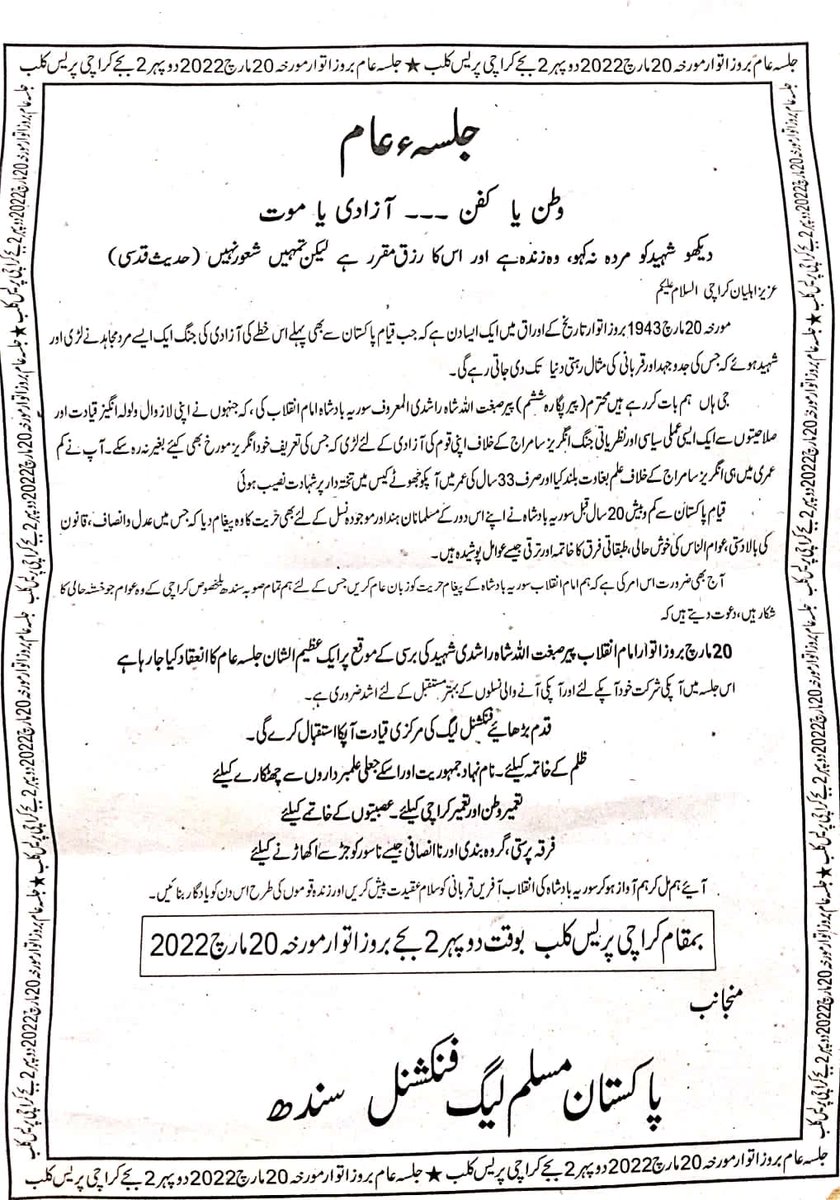 جلسہ عام بروز اتوار مورخہ 20 مارچ 2022 دوپہر 2 بجے کراچی پریس کلب ★ جلسہ عام بروز اتوار مورخہ 20 مارچ 2022 دوپہر 2 بجے کراچی پریس کلب
جلسہء عام
وطن یا کفن ۔۔۔ آزادی یا موت
دیکھو شہید کو مردہ نہ کہو، وہ زندہ ہے اور اس کا رزق مقرر ہے لیکن تمہیں شعور نہیں (حدیث قدسی)
عزیز اہلیان کراچی السلام علیکم
مورخہ 20 مارچ 1943 بروز اتوار تاریخ کے اوراق میں ایک ایسا دن ہے کہ جب قیام پاکستان سے بھی پہلے اس خطے کی آزادی کی جنگ ایک ایسے مرد مجاہد نے لڑی اور
شہید ہوئے کہ جس کی جدوجہد اور قربانی کی مثال رہتی دنیا تک دی جاتی رہے گی۔
جی ہاں ہم بات کر رہے ہیں محترم (پیر پگارہ ششم) پیر صبغت اللہ شاہ راشدی المعروف سوریہ بادشاہ امام انقلاب کی، کہ جنہوں نے اپنی لازوال ولولہ انگیز قیادت اور
صلاحیتوں سے ایک ایسی عملی سیاسی اور نظریاتی جنگ انگریز سامراج کے خلاف اپنی قوم کی آزادی کے لئے لڑی کہ جس کی تعریف خود انگریز مورخ بھی کیئے بغیر نہ رہ سکے۔ آپ نے کم
عمری میں ہی انگریز سامراج کے خلاف علم بغاوت بلند کیا اور صرف 33 سال کی عمر میں آپکو جھوٹے کیس میں تختہ دار پر شہادت نصیب ہوئی
قیام پاکستان سے کم و بیش 20 سال قبل سوریہ بادشاہ نے اپنے اس دور کے مسلمانان ہند اور موجودہ نسل کے لئے بھی حریت کا وہ پیغام دیا کہ جس میں عدل و انصاف، قانون
کی بالادستی، عوام الناس کی خوش حالی، طبقاتی فرق کا خاتمہ اور ترقی جیسے عوامل پوشیدہ ہیں۔
آج بھی ضرورت اس امر کی ہے کہ ہم امام انقلاب سوریہ بادشاہ کے پیغام حریت کو زبان عام کریں جس کے لئے ہم تمام صوبہ سندھ بلخصوص کراچی کے وہ عوام جو خستہ حالی کا
شکار ہیں، دعوت دیتے ہیں کہ
20 مارچ بروز اتوار امام انقلاب پیر صبغت اللہ شاہ راشدی شہید کی برسی کے موقع پر ایک عظیم الشان جلسہ عام کا انعقاد کیا جا رہا ہے
اس جلسہ میں آپکی شرکت خود آپکے لئے اور آپکی آنے والی نسلوں کے بہتر مستقبل کے لئے اشد ضروری ہے۔
قدم بڑھائیے فنکشنل لیگ کی مرکزی قیادت آپکا استقبال کرے گی۔
ظلم کے خاتمہ کیلئے۔ نام نہاد جمہوریت اور اسکے جعلی علمبرداروں سے چھٹکارے کیلئے
تعمیر وطن اور تعمیر کراچی کیلئے۔ عصبیتوں کے خاتمے کیلئے
فرقہ پرستی، گروہ بندی اور نا انصافی جیسے ناسور کو جڑ سے اکھاڑنے کیلئے
آیئے ہم مل کر ہم آواز ہو کر سوریہ بادشاہ کی انقلاب آفریں قربانی کو سلام عقیدت پیش کریں اور زندہ قوموں کی طرح اس دن کو یادگار بنائیں۔
بمقام کراچی پریس کلب بوقت دوپہر 2 بجے بروز اتوار مورخہ 20 مارچ 2022
منجانب
پاکستان مسلم لیگ فنکشنل سندھ
جلسہ عام بروز اتوار مورخہ 20 مارچ 2022 دوپہر 2 بجے کراچی پریس کلب ★ جلسہ عام بروز اتوار مورخہ 20 مارچ 2022 دوپہر 2 بجے کراچی پریس کلب